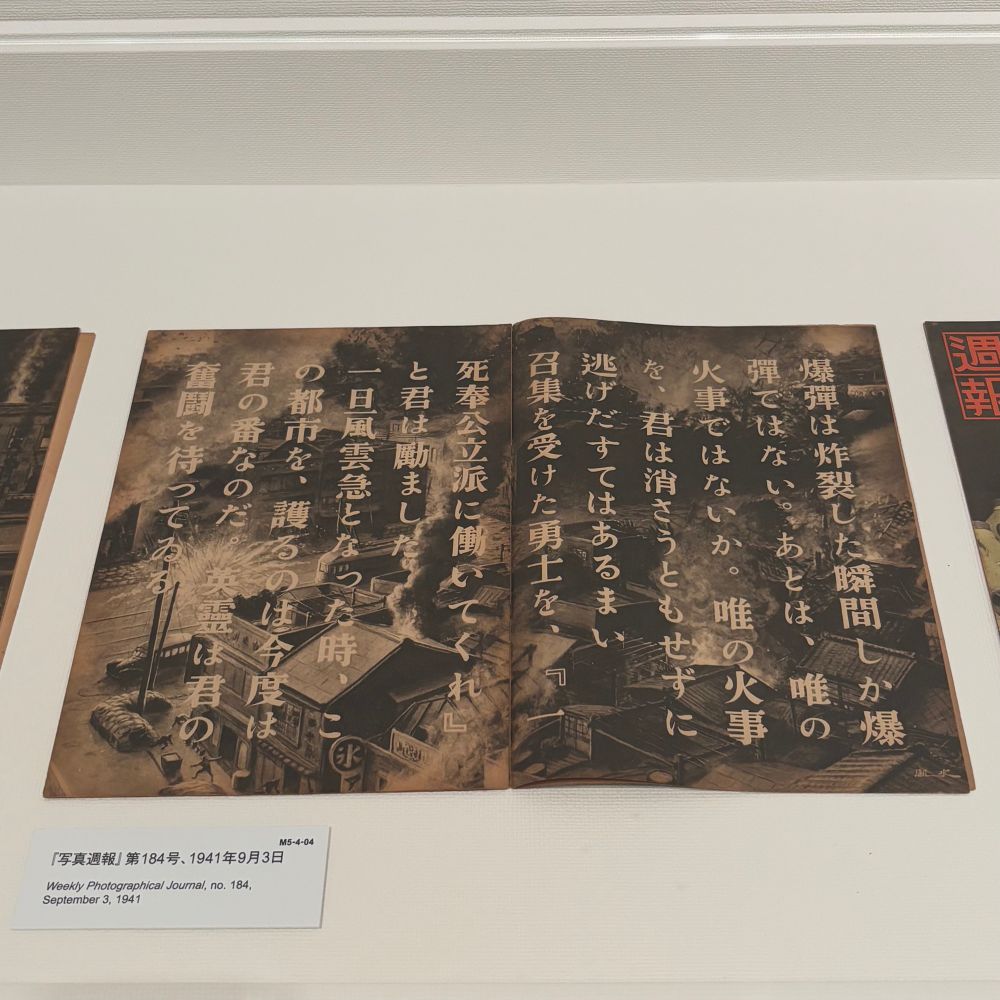 爆彈は炸裂した瞬間しか爆
彈ではない。あとは、唯の
火事ではないか。唯の火事
を、君は消さうともせずに
逃げだすてはあるまい
召集を受けた勇士を、『一
死奉公立派に働いてくれ』
と君は勵ました
一旦風雲急となった時、こ
の都市を、護るのは今度は
君の番なのだ。英靈は君の
奮鬪を待ってゐる
氷
週報
M5-4-04
『写真週報』第184号、1941年9月3日
Weekly Photographical Journal, no. 184,
September 3, 1941